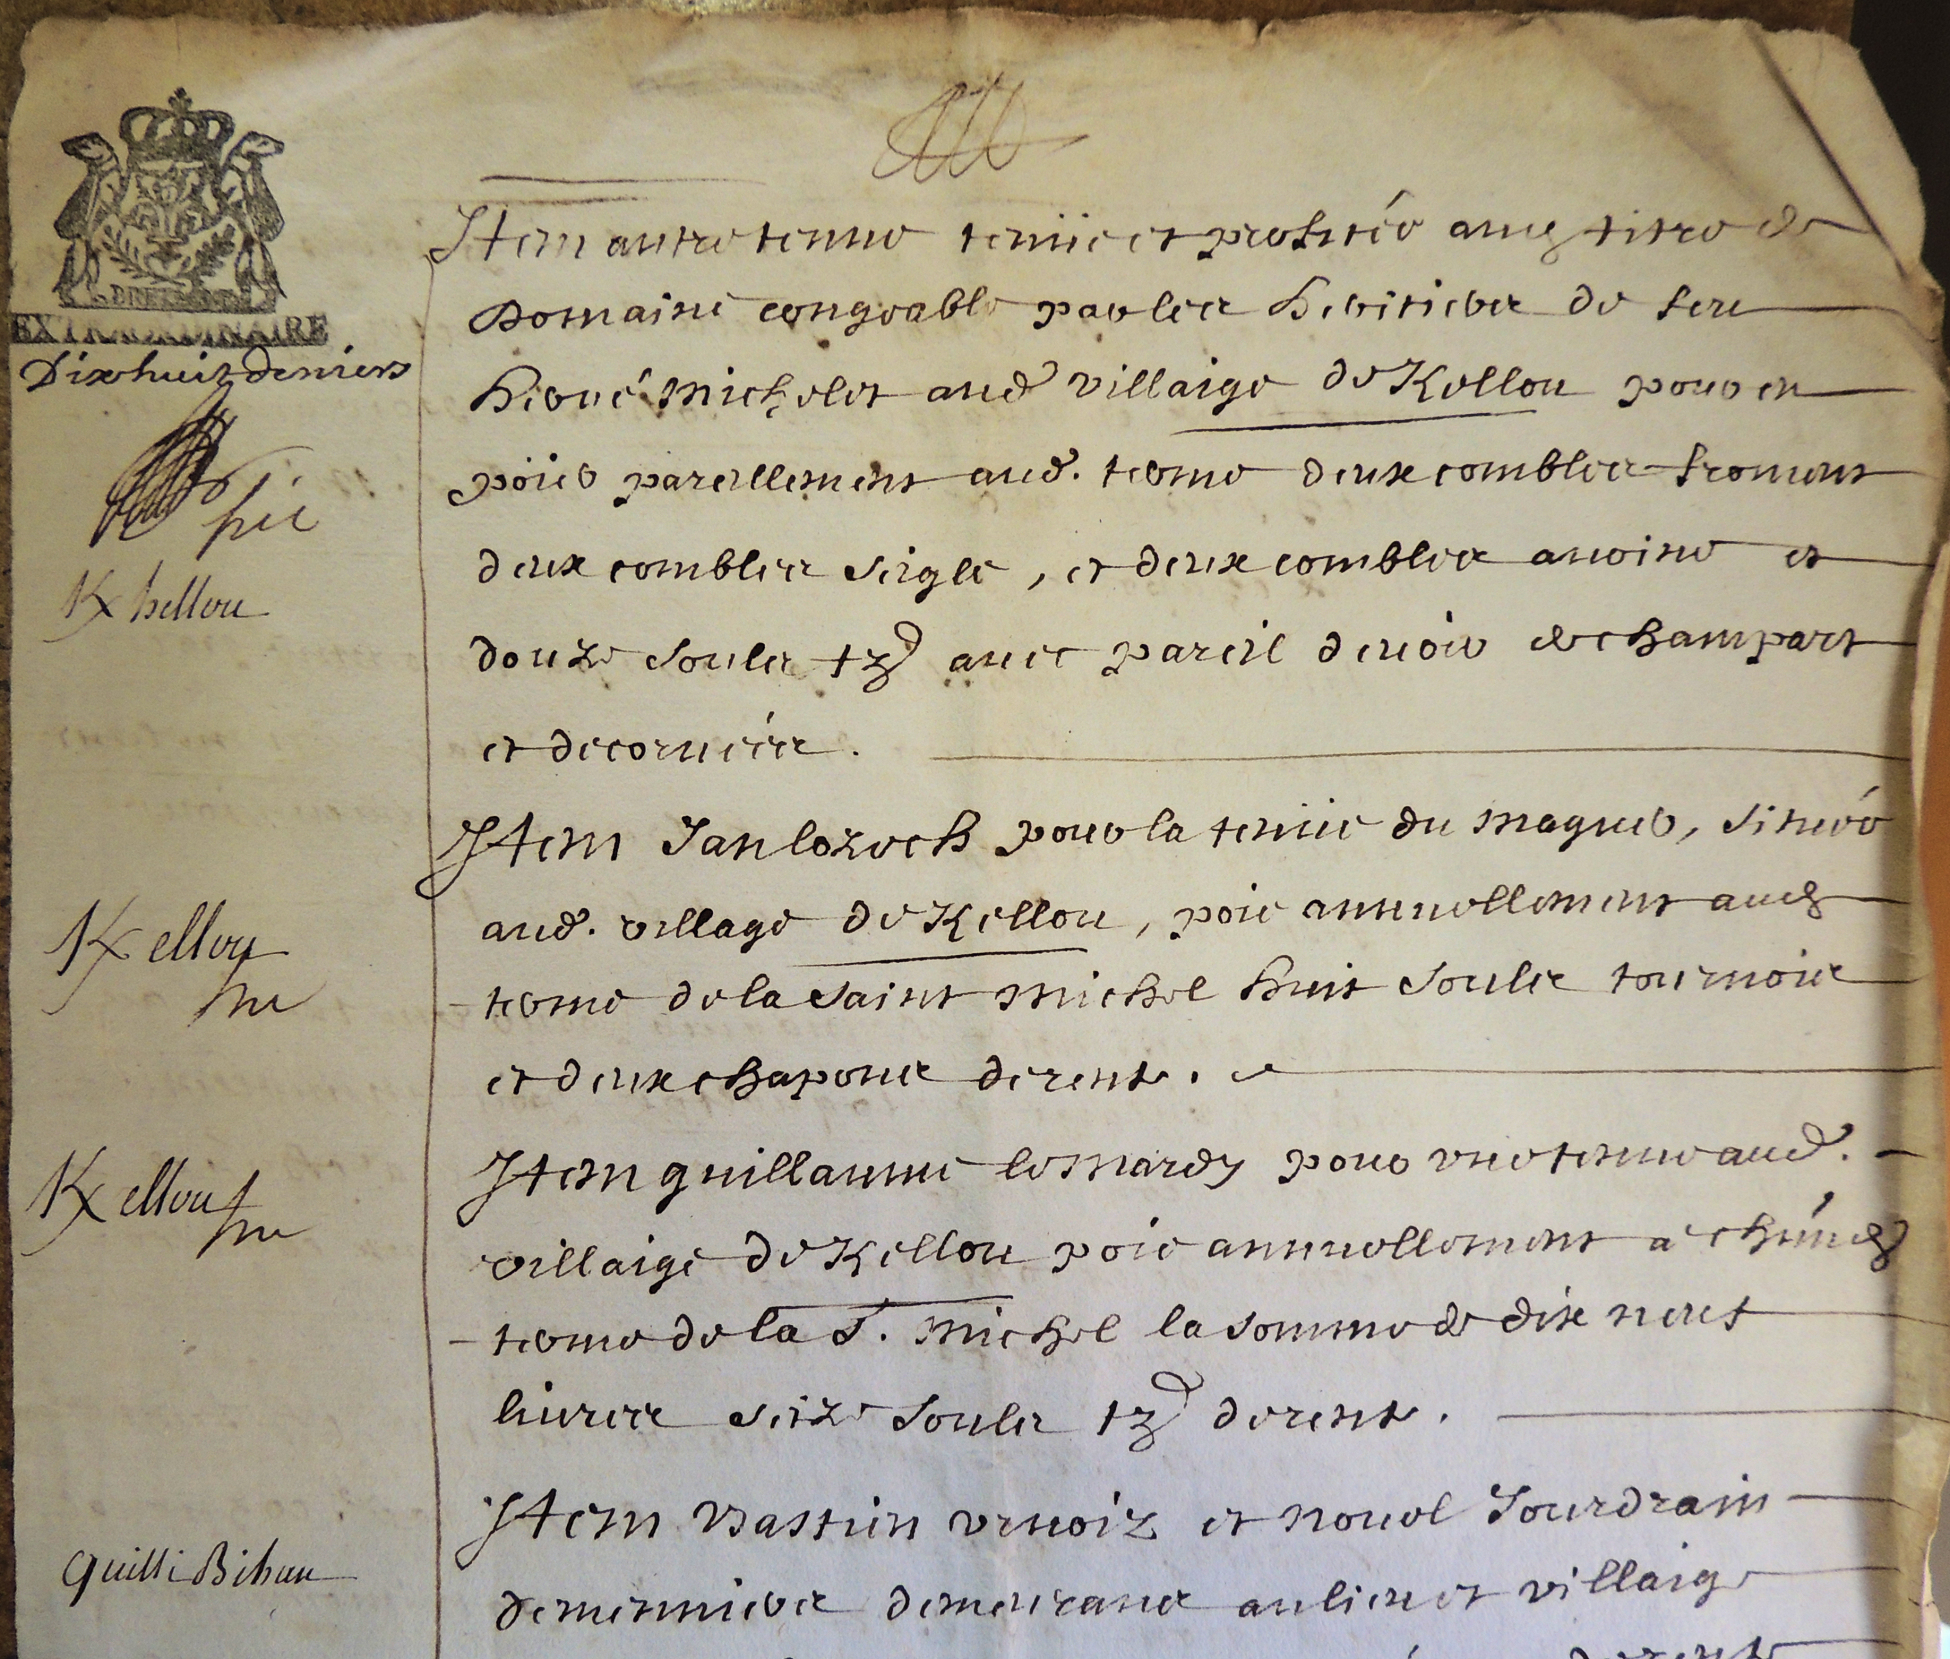 BRETAGNE
EXTRAORDINAIRE
Dix huit deniers
Item autre tenue tenüe et profitée aud titre de
Domaine congeable par les heritiers de feu
hervé Michelet aud villaige de Kellou pour en
poier pareillement aud. terme deux combles froment
deux combles seigle, et deux combles avoine et
Khellou
douze soulz tz avec pareil devoir de champart
et de corvées.
Item Jan lozech pour la tenüe du maguer, située
aud. village de Kellou, poie annuellement aud
Kellou
terme de la saint Michel huit soulz tournois
et deux chapons de rente.
Item guillaume le Hardy pour une tenue aud.
Kellou
villaige de Kellou poie annuellement a chacun
terme de la S. Michel la somme de dix neuf
livres seize soulz tz de rente.
Item Bastien et Nouel Jourdrain
quilli Bihan
demeurans au lieu et villaige